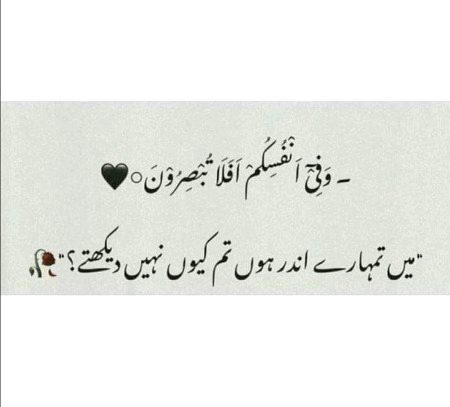 ۔ وَفِیْۤ اَنْفُسِكُمْ اَفَلَا تُبْصِرُوْنَ○🖤
"میں تمہارے اندر ہوں تم کیوں نہیں دیکھتے؟"🥀